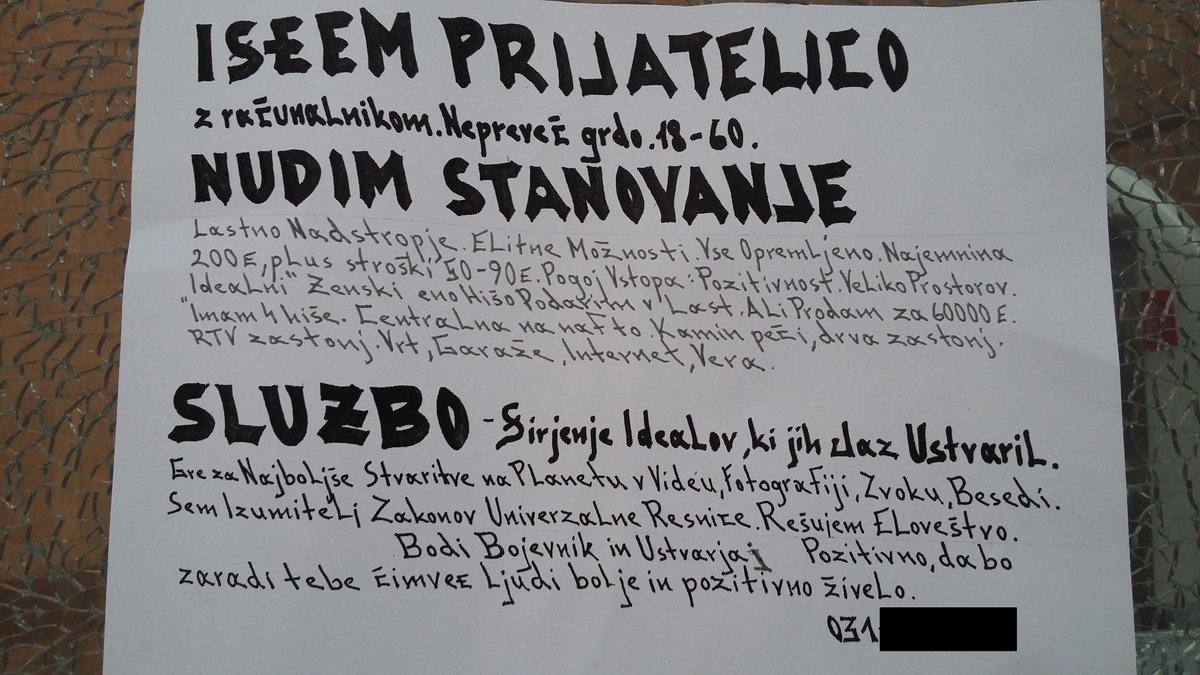 IŠČEM PRIJATELICO
z računalnikom. Nepreveč grdo. 18-60.
NUDIM STANOVANJE
Lastno Nadstropje. Elitne Možnosti. Vse Opremljeno. Najemnina
200E, plus stroški 50-90E. Pogoj Vstopa: Pozitivnost. Veliko Prostorov.
"Idealni" Ženski, eno Hišo Podarim v Last. Ali Prodam za 60000E.
Imam 4 hiše. Centralna na nafto. Kamin peči, drva zastonj.
RTV zastonj. Vrt, Garaže, Internet, Vera.
SLUŽBO - Širjenje Idealov, ki jih Jaz Ustvaril.
Gre za Najboljše Stvaritve na Planetu v Videu, Fotografiji, Zvoku, Besedi.
Sem Izumitelj Zakonov Univerzalne Resnice. Rešujem Človeštvo.
Bodi Bojevnik in Ustvarjaj Pozitivno, da bo
zaradi tebe čimveč Ljudi bolje in pozitivno živelo.
031